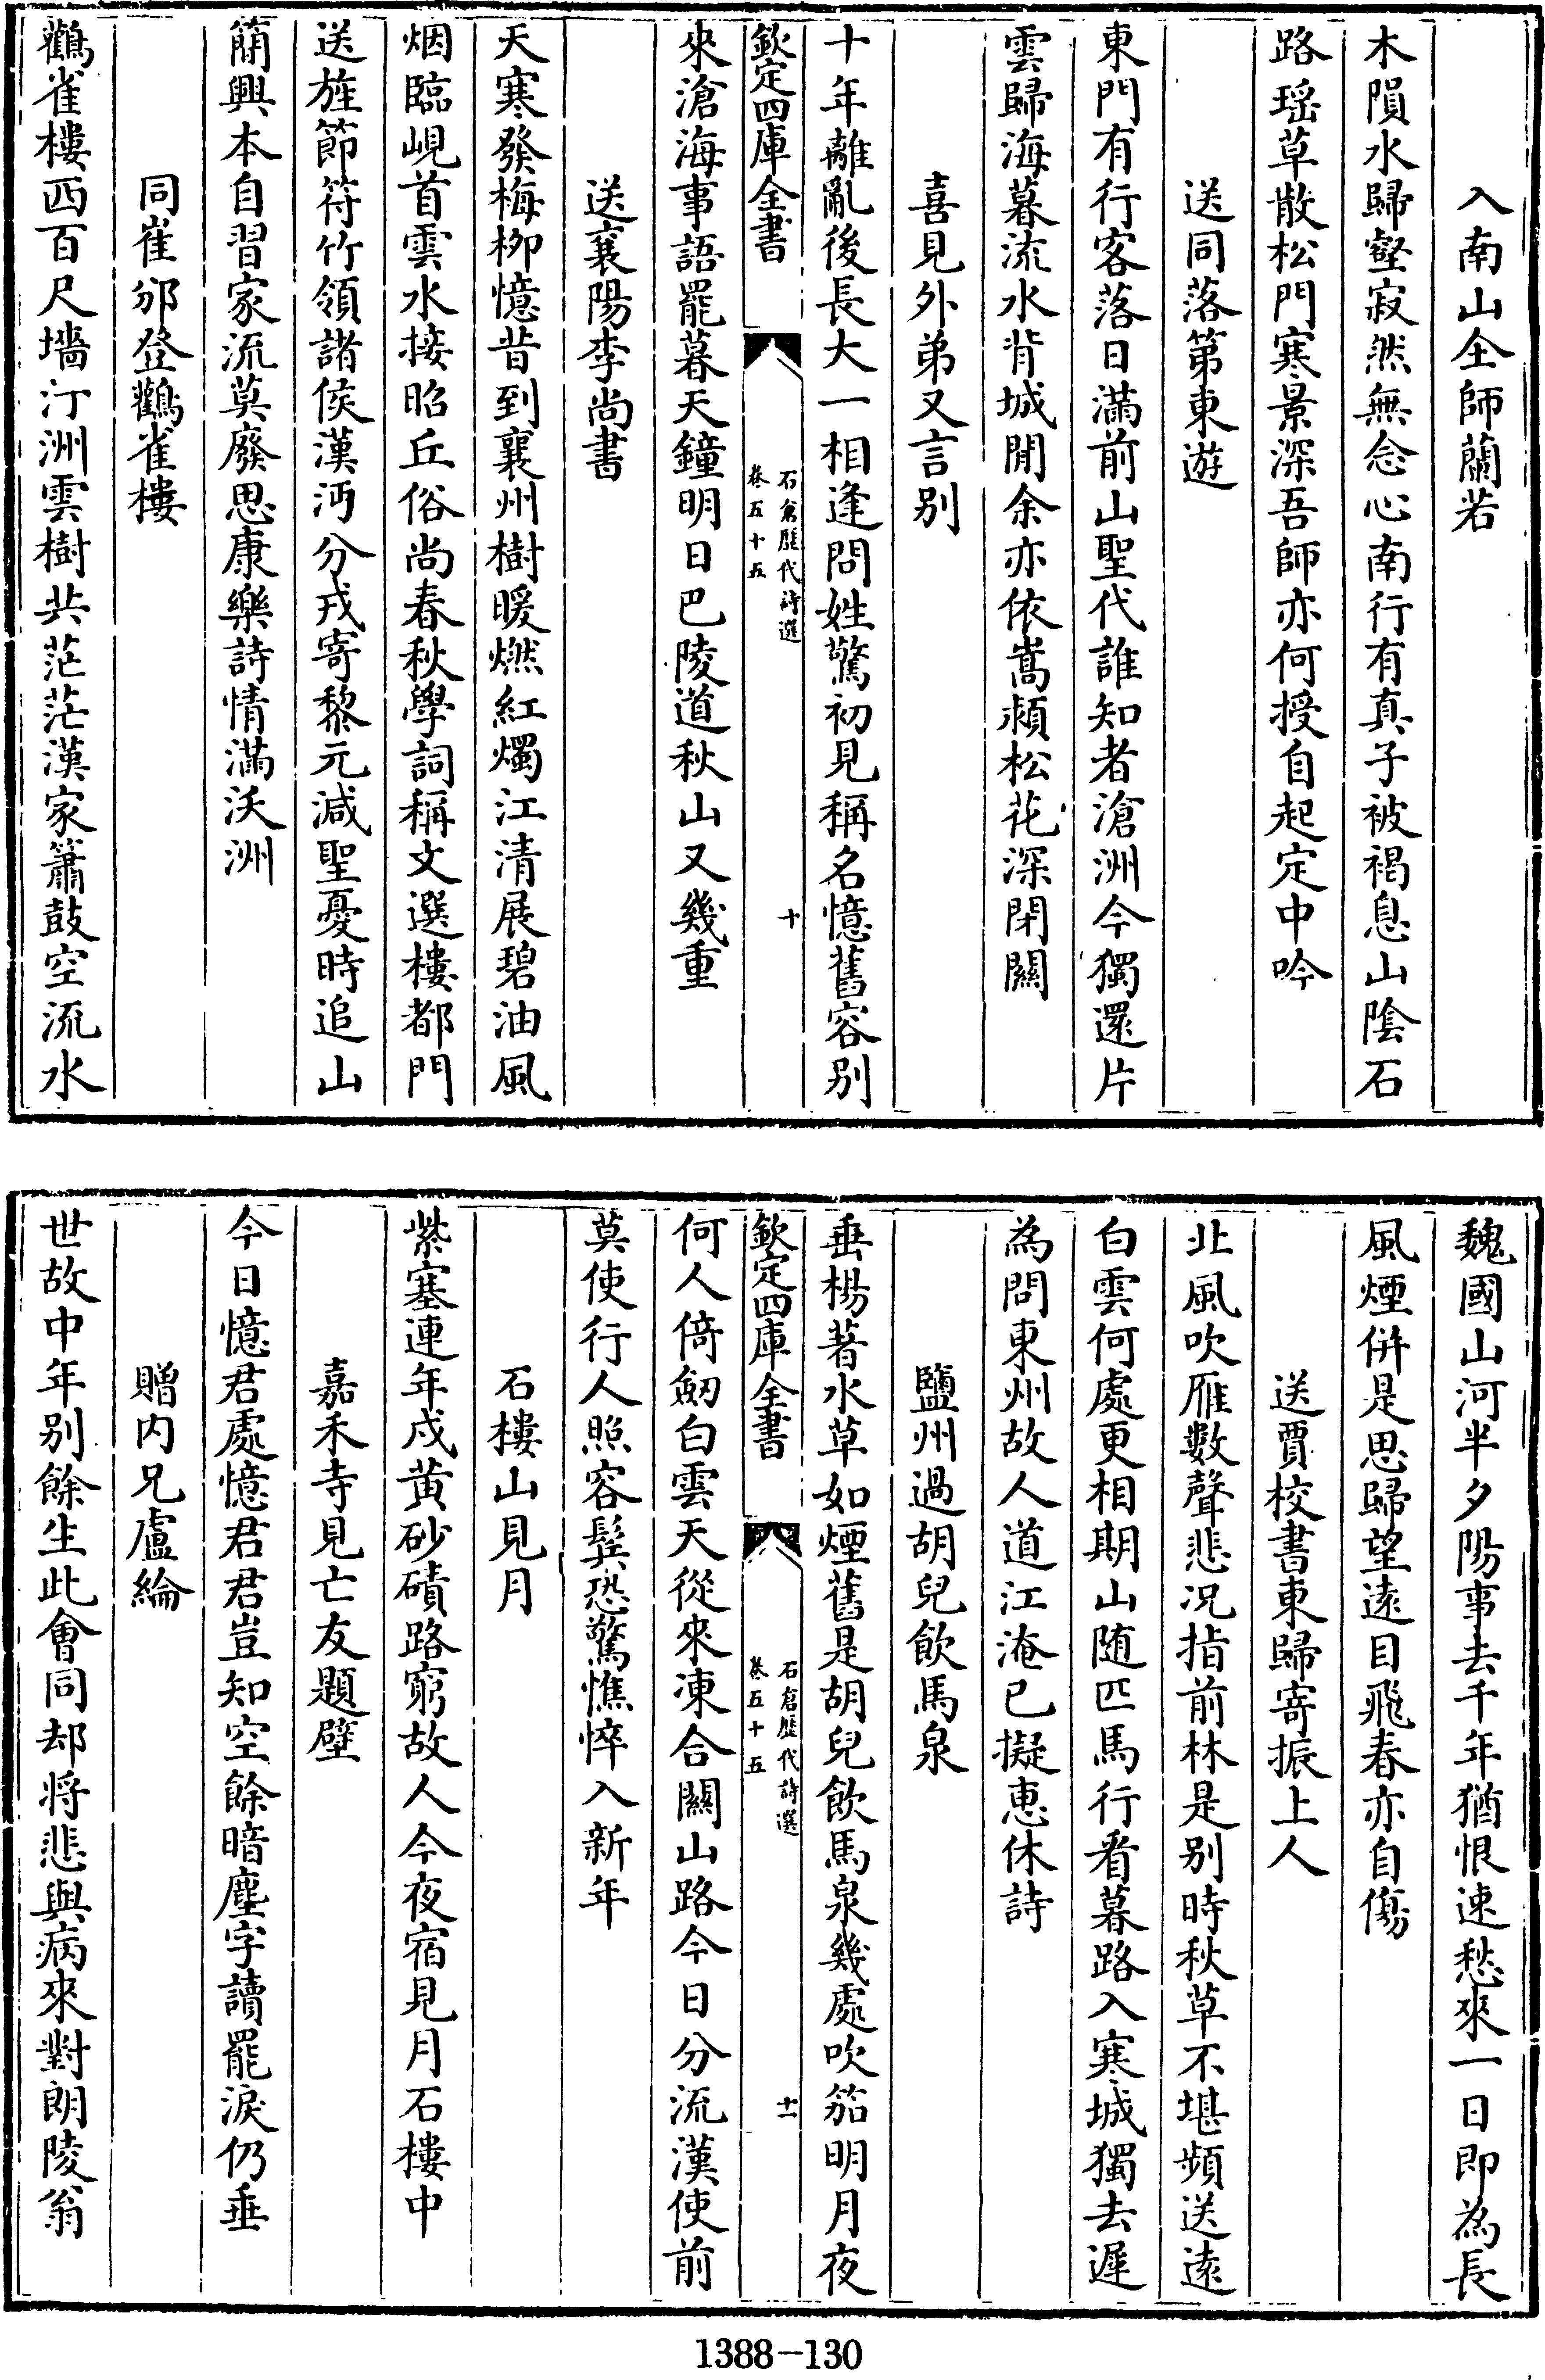 入南山全師蘭若
木隕水歸壑寂然無念心南行有真子被褐息山陰石
路瑶草散松門寒景深吾師亦何授自起定中吟
送同落第東遊
東門有行客落日滿前山聖代誰知者滄洲今獨還片
雲歸海暮流水背城閒余亦依嵩潁松花深閉關
喜見外弟又言别
十年離亂後長大一相逢問姓驚初見稱名憶舊容别
欽定四庫全書
石倉歷代詩選
卷五十五
十
來滄海事語罷暮天鐘明日巴陵道秋山又幾重
送襄陽李尚書
天寒發梅栁憶昔到襄州樹暖燃紅燭江清展碧油風
烟臨峴首雲水接昭丘俗尚春秋學詞稱文選樓都門
送旌節符竹領諸侯漢沔分戎寄黎元減聖憂時追山
簡興本自習家流莫廢思康樂詩情滿沃洲
同崔邠登鸛雀樓
鸛雀樓西百尺墻汀洲雲樹共茫茫漢家簫鼓空流水
魏國山河半夕陽事去千年猶恨速愁來一日即為長
風煙併是思歸望遠目飛春亦自傷
送賈校書東歸寄振上人
北風吹雁數聲悲况指前林是别時秋草不堪頻送遠
白雲何處更相期山随匹馬行看暮路入寒城獨去遲
為問東州故人道江淹已擬惠休詩
鹽州過胡兒飲馬泉
垂楊著水草如煙舊是胡兒飲馬泉幾處吹笳明月夜
欽定四庫全書
石倉歷代詩選
卷五十五
十一
何人倚劒白雲天從來凍合關山路今日分流漢使前
莫使行人照容鬂恐驚憔悴入新年
石樓山見月
紫塞連年戍黄砂磧路窮故人今夜宿見月石樓中
嘉禾寺見亡友題壁
今日憶君處憶君君豈知空餘暗塵字讀罷淚仍垂
贈内兄盧綸
世故中年别餘生此會同却将悲與病來對朗陵翁
1388-130